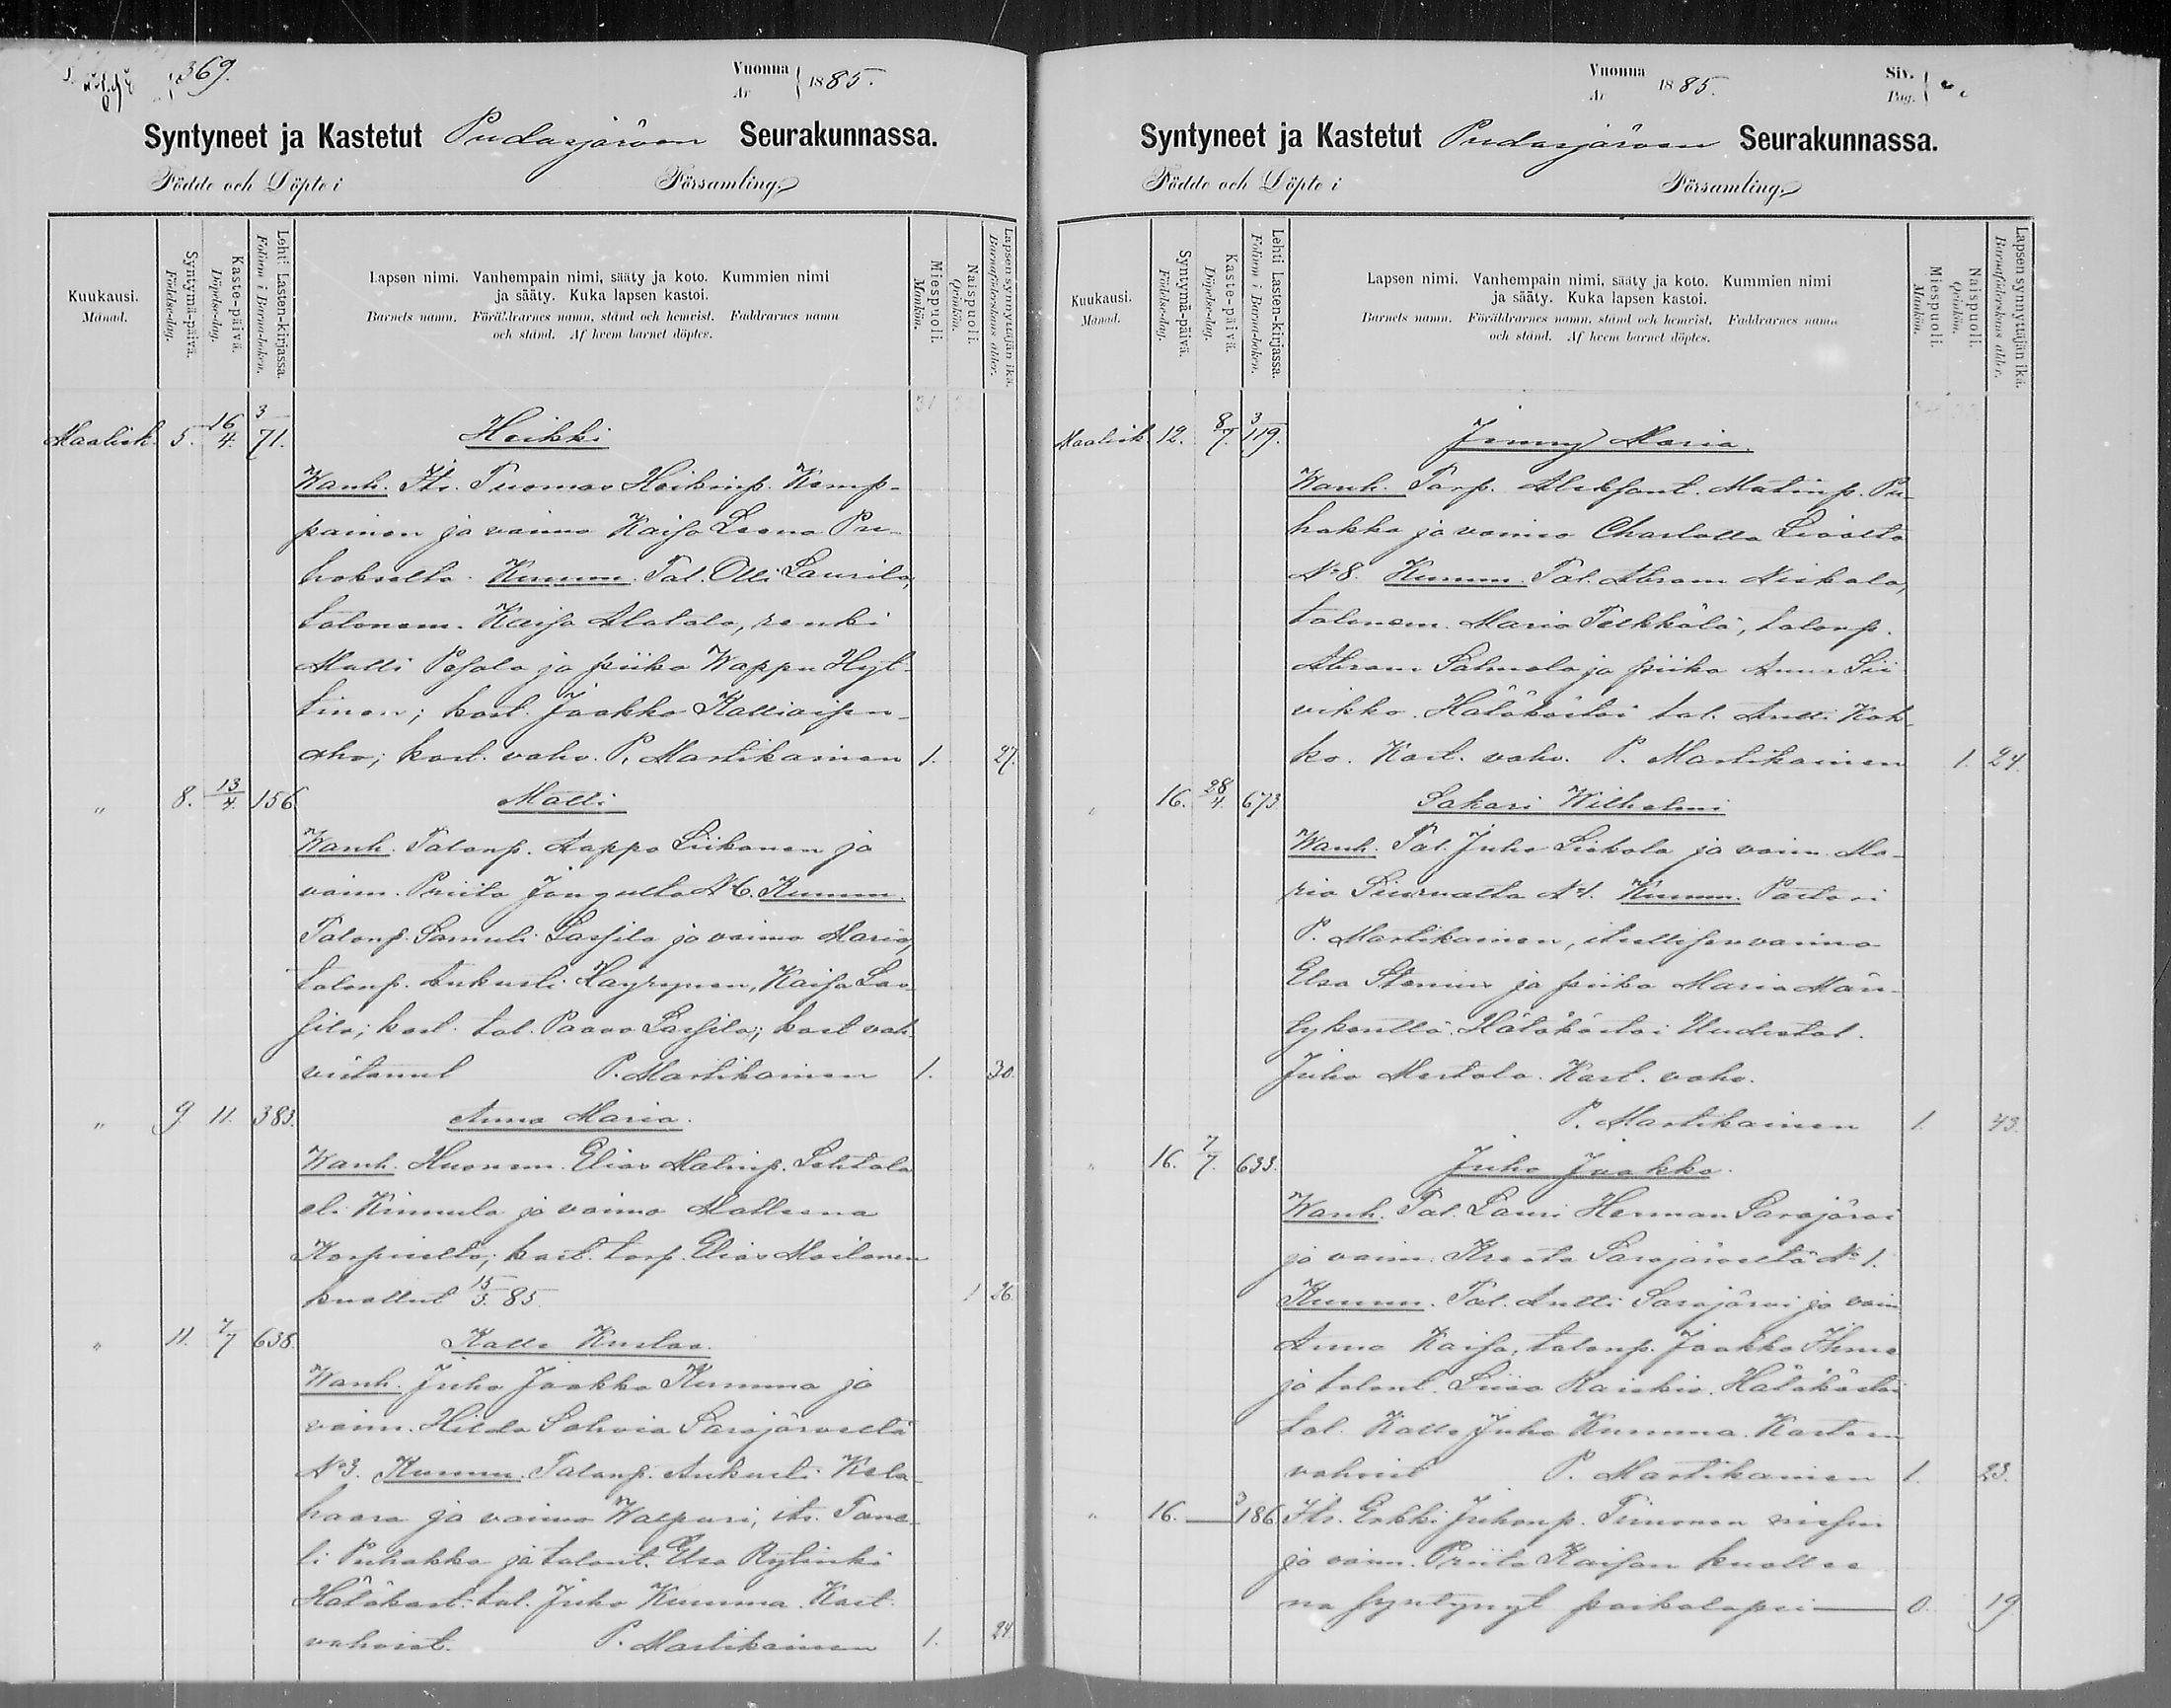 369.
Vuonna 1885.
År
Syntyneet ja Kastetut Pudasjärven Seurakunnassa.
Födde och Döpte i Församling.
Kuukausi.
Månad.
Syntymä-päivä.
Födelse-dag.
Kaste-päivä.
Döpelse-dag.
Lehti Lasten-kirjassa.
Folium i Barna-boken.
Lapsen nimi. Vanhempain nimi, sääty ja koto. Kummien nimi
ja sääty. Kuka lapsen kastoi.
Barnets namn. Föräldrarnes namn, stånd och hemvist. Faddrarnes namn
och stånd. Af hvem barnet döptes.
Miespuoli.
Mankön.
Naispuoli.
Qvinkön.
Lapsen synnyttäjän ikä.
Barnaföderskans ålder.
Maalisk. 5. 16/4. 3/71. Heikki
Wanh. Its. Tuomas Heikinp. Kemp-
painen ja vaimo Kaisa Leena Pu-
hokselta. Kumm. Tal. Olli Laurila,
talonem. Kaisa Alatalo, renki
Matti Posala ja piika Wappu Hyt-
tinen; kast. Jaakko Kalliaisen-
aho; kast. vahv. P. Martikainen 1. 27.
" 8. 13/4. 156 Matti
Wanh. Talonp. Aappo Liikanen ja
vaim. Priita Jongulta N:6. Kumm.
Talonp. Samuli Lassila ja vaimo Maria,
talonp. Aukusti Häyrynen, Kaisa Las-
sila; kast. tal. Paavo Lassila; kast. vah-
vistanut P. Martikainen 1. 30.
" 9 11. 383. Anna Maria.
Wanh. Huonem. Elias Matinp. Lehtola
eli Kinnula ja vaimo Matleena
Korpiselta; kast. torp. Elias Moilanen
kuollut 15/3. 85. 1 26
" 11. 7/7 638. Kalle Kustaa.
Wanh. Juho Jaakko Kumma ja
vaim. Hilda Sohvia Sarajärveltä
N:3. Kumm. Talonp. Aukusti Kela-
haara ja vaimo Walpuri, its. Tane-
li Puhakka ja talont. Elsa Rytinki
Hätäkast. tal. Juho Kumma. Kast.
vahvist. P. Martikainen 1. 24.
Vuonna 1885.
År
Siv.
Pag.
Syntyneet ja Kastetut Pudasjärven Seurakunnassa.
Födde och Döpte i Församling.
Kuukausi.
Månad.
Syntymä-päivä.
Födelse-dag.
Kaste-päivä.
Döpelse-dag.
Lehti Lasten-kirjassa.
Folium i Barna-boken.
Lapsen nimi. Vanhempain nimi, sääty ja koto. Kummien nimi
ja sääty. Kuka lapsen kastoi.
Barnets namn. Föräldrarnes namn, stånd och hemvist. Faddrarnes namn
och stånd. Af hvem barnet döptes.
Miespuoli.
Mankön.
Naispuoli.
Qvinkön.
Lapsen synnyttäjän ikä.
Barnaföderskans ålder.
Maalisk. 12. 8/7. 3/119. Jenny Maria.
Wanh. Torp. Aleksant. Matinp. Pu-
hakka ja vaimo Charlotta Livolta
N:8. Kumm. Tal. Abram Niskala,
talonem. Maria Tolkkälä, talonp.
Abram Salmela ja piika Anna Sii-
vikko. Hätäkastoi tal. Antti Kok-
ko. Kast. vahv. P. Martikainen 1. 24.
" 16. 28/4. 673 Sakari Wilhelmi
Wanh. Tal. Juho Siekola ja vaim. Ma-
ria Siurualta N:1. Kumm. Pastori
P. Martikainen, itsellisenvaimo
Elsa Stenius ja piika Maria Män-
tykentlä. Hätäkastoi Uudistal.
Juho Mertala. Kast. vahv.
P. Martikainen 1. 43.
" 16. 7/7. 633. Juho Jaakko.
Wanh. Tal. Lauri Herman Sarajärvi
ja vaim. Kreeta Sarajärveltä N:1.
Kumm. Tal. Antti Sarajärvi ja vaim.
Anna Kaisa, talonp. Jaakko Ihme
ja talont. Liisa Raiskio. Hätäkastoi
tal. Kalle Juho Kumma. Kasteen
vahvist P. Martikainen 1. 23.
" 16. — 3/186 Its. Erkki Juhonp. Timonen niesen
ja vaim. Priita Kaisan kuollee-
na syntynyt poikalapsi — 0. 19